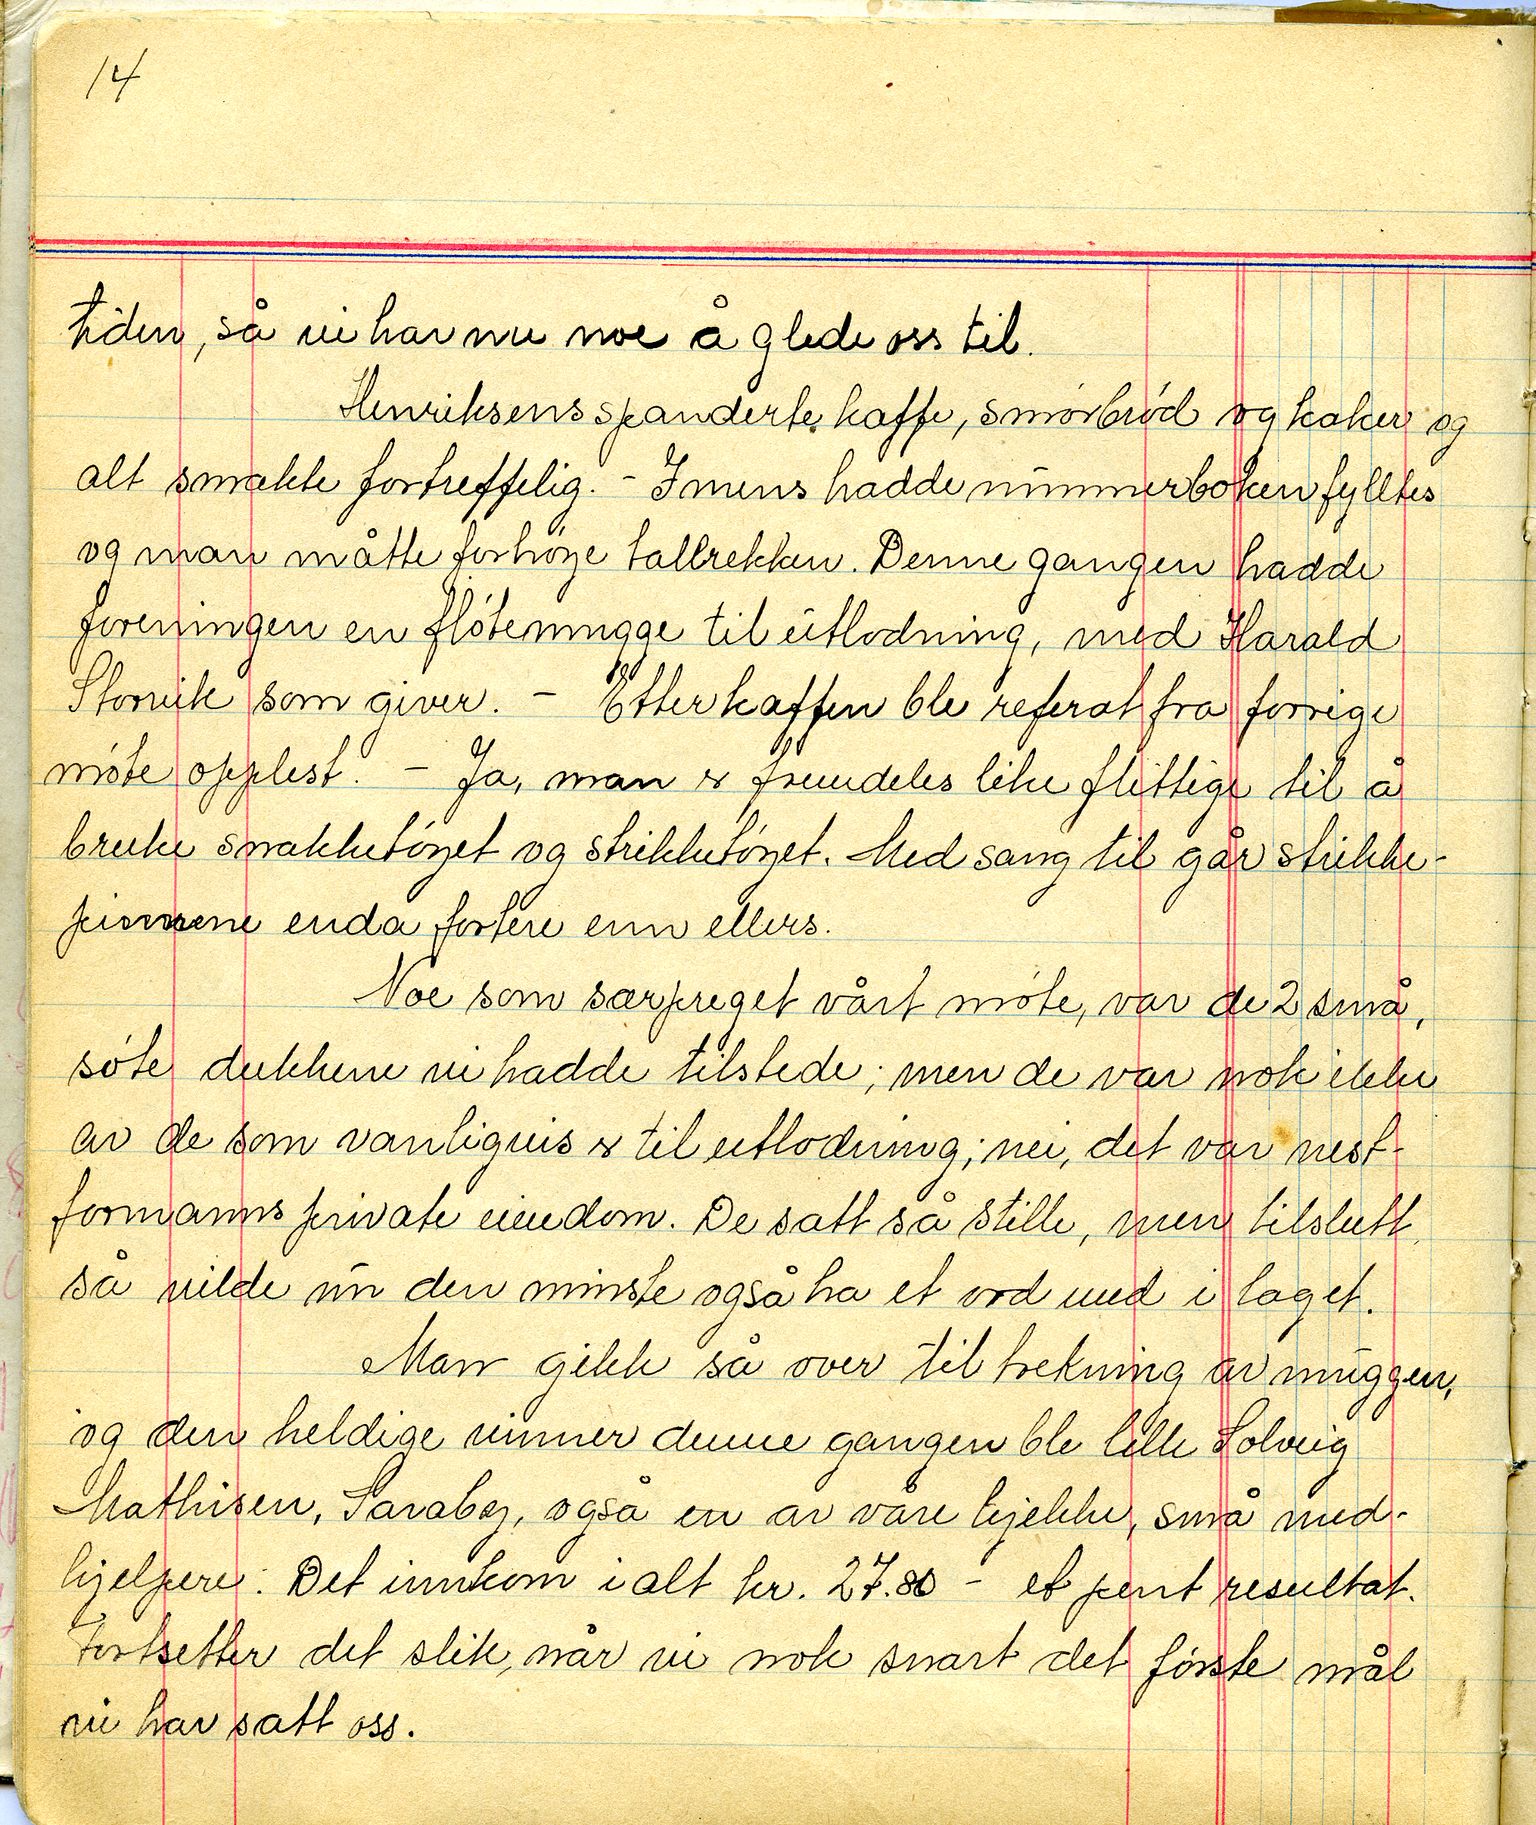 14
tiden, så vi har nu noe å glede oss til.
Henriksens spanderte kaffe, smørbrød og kaker og
alt smakte fortreffelig. - Imens hadde nummerboken fylltes
og man måtte forhøye tallrekken. Denne gangen hadde
foreningen en fløtemugge til utlodning, med Harald
Storvik som giver. - Etter kaffen ble referat fra forrige
møte opplest. - Ja, man er fremdeles like flittige til å
bruke snakketøyet og strikketøyet. Med sang til går strikke-
pinnene enda fortere enn ellers.
Noe som særpreget vårt møte, var de 2 små,
søte dukkene vi hadde tilstede; men de var nok ikke
av de som vanligvis er til utlodning; nei, det var nest-
formanns private eiendom. De satt så stille, men tilslutt
så vilde nu den minste også ha et ord med i laget.
Man gikk så over til trekning av muggen,
og den heldige vinner denne gangen ble lille Solveig
Mathisen, Saraby, også en av våre kjekke, små med-
hjelpere. Det innkom i alt kr. 27.80 - et pent resultat.
Fortsetter det slik, når vi nok snart det første mål
vi har satt oss.